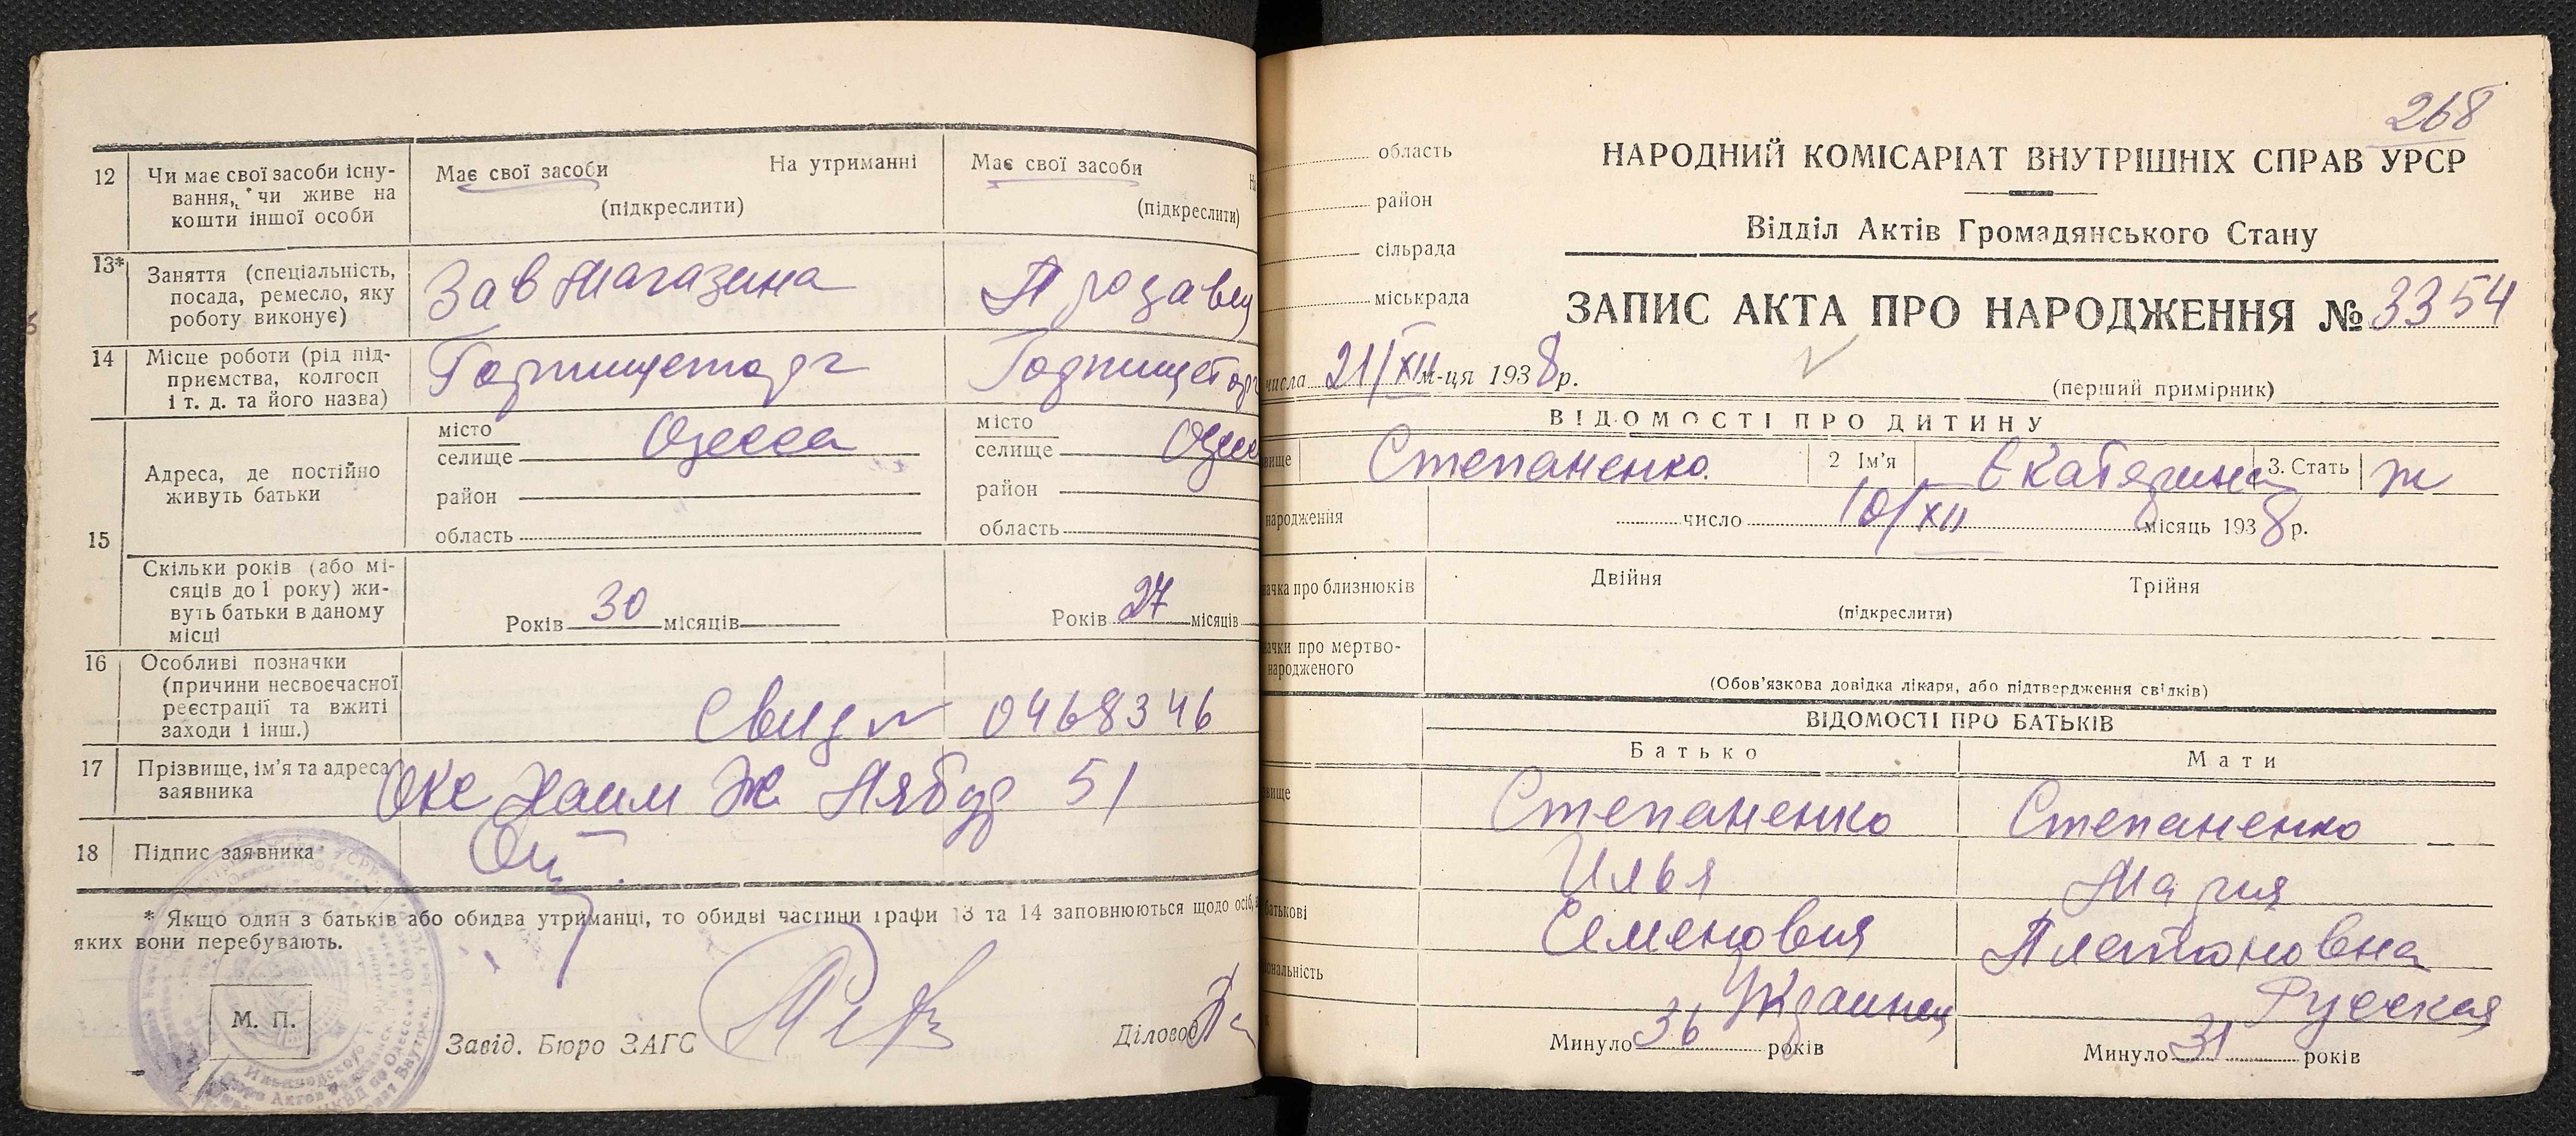 12 Чи має свої засоби існу-
вання, чи живе на
кошти іншої особи
Має свої засоби На утриманні
(підкреслити)
Має свої засоби
(підкреслити)
13* Заняття (спеціальність,
посада, ремесло, яку
роботу виконує)
Зав магазина
Продавец
14 Місце роботи (рід під-
приємства, колгосп
і т. д. та його назва)
Горпищеторг
Горпищеторг
15 Адреса, де постійно
живуть батьки
місто
селище Одесса
район
область
місто
селище Одесс
район
область
Скільки років (або мі-
сяців до 1 року) жи-
вуть батьки в даному
місці
Років 30 місяців
Років 27 місяців
16 Особливі позначки
(причини несвоєчасної
реєстрації та вжиті
заходи і інш.)
Свид № 0468346
17 Прізвище, ім'я та адреса
заявника
Окс Хаим Ж. 51
18 Підпис заявника
* Якщо один з батьків або обидва утриманці, то обидві частини графи 13 та 14 заповнюються щодо осіб,
яких вони перебувають.
М. П.
Завід. Бюро ЗАГС
Діловод
268
область
район
сільрада
міськрада
НАРОДНИЙ КОМІСАРІАТ ВНУТРІШНІХ СПРАВ УРСР
Відділ Актів Громадянського Стану
ЗАПИС АКТА ПРО НАРОДЖЕННЯ № 3354
числа 21/XII м-ця 1938р.
(перший примірник)
ВІДОМОСТІ ПРО ДИТИНУ
вище Степаненко 2 Ім'я Екатерина 3. Стать ж
народження число 10/XII місяць 1938р.
ачка про близнюків Двійня Трійня
(підкреслити)
ачки про мертво-
народженого
(Обов'язкова довідка лікаря, або підтвердження свідків)
ВІДОМОСТІ ПРО БАТЬКІВ
Батько Мати
вище Степаненко Степаненко
Илья Мария
батькові Семенович Платоновна
ональність Украинец Русская
Минуло 36 років Минуло 31 років